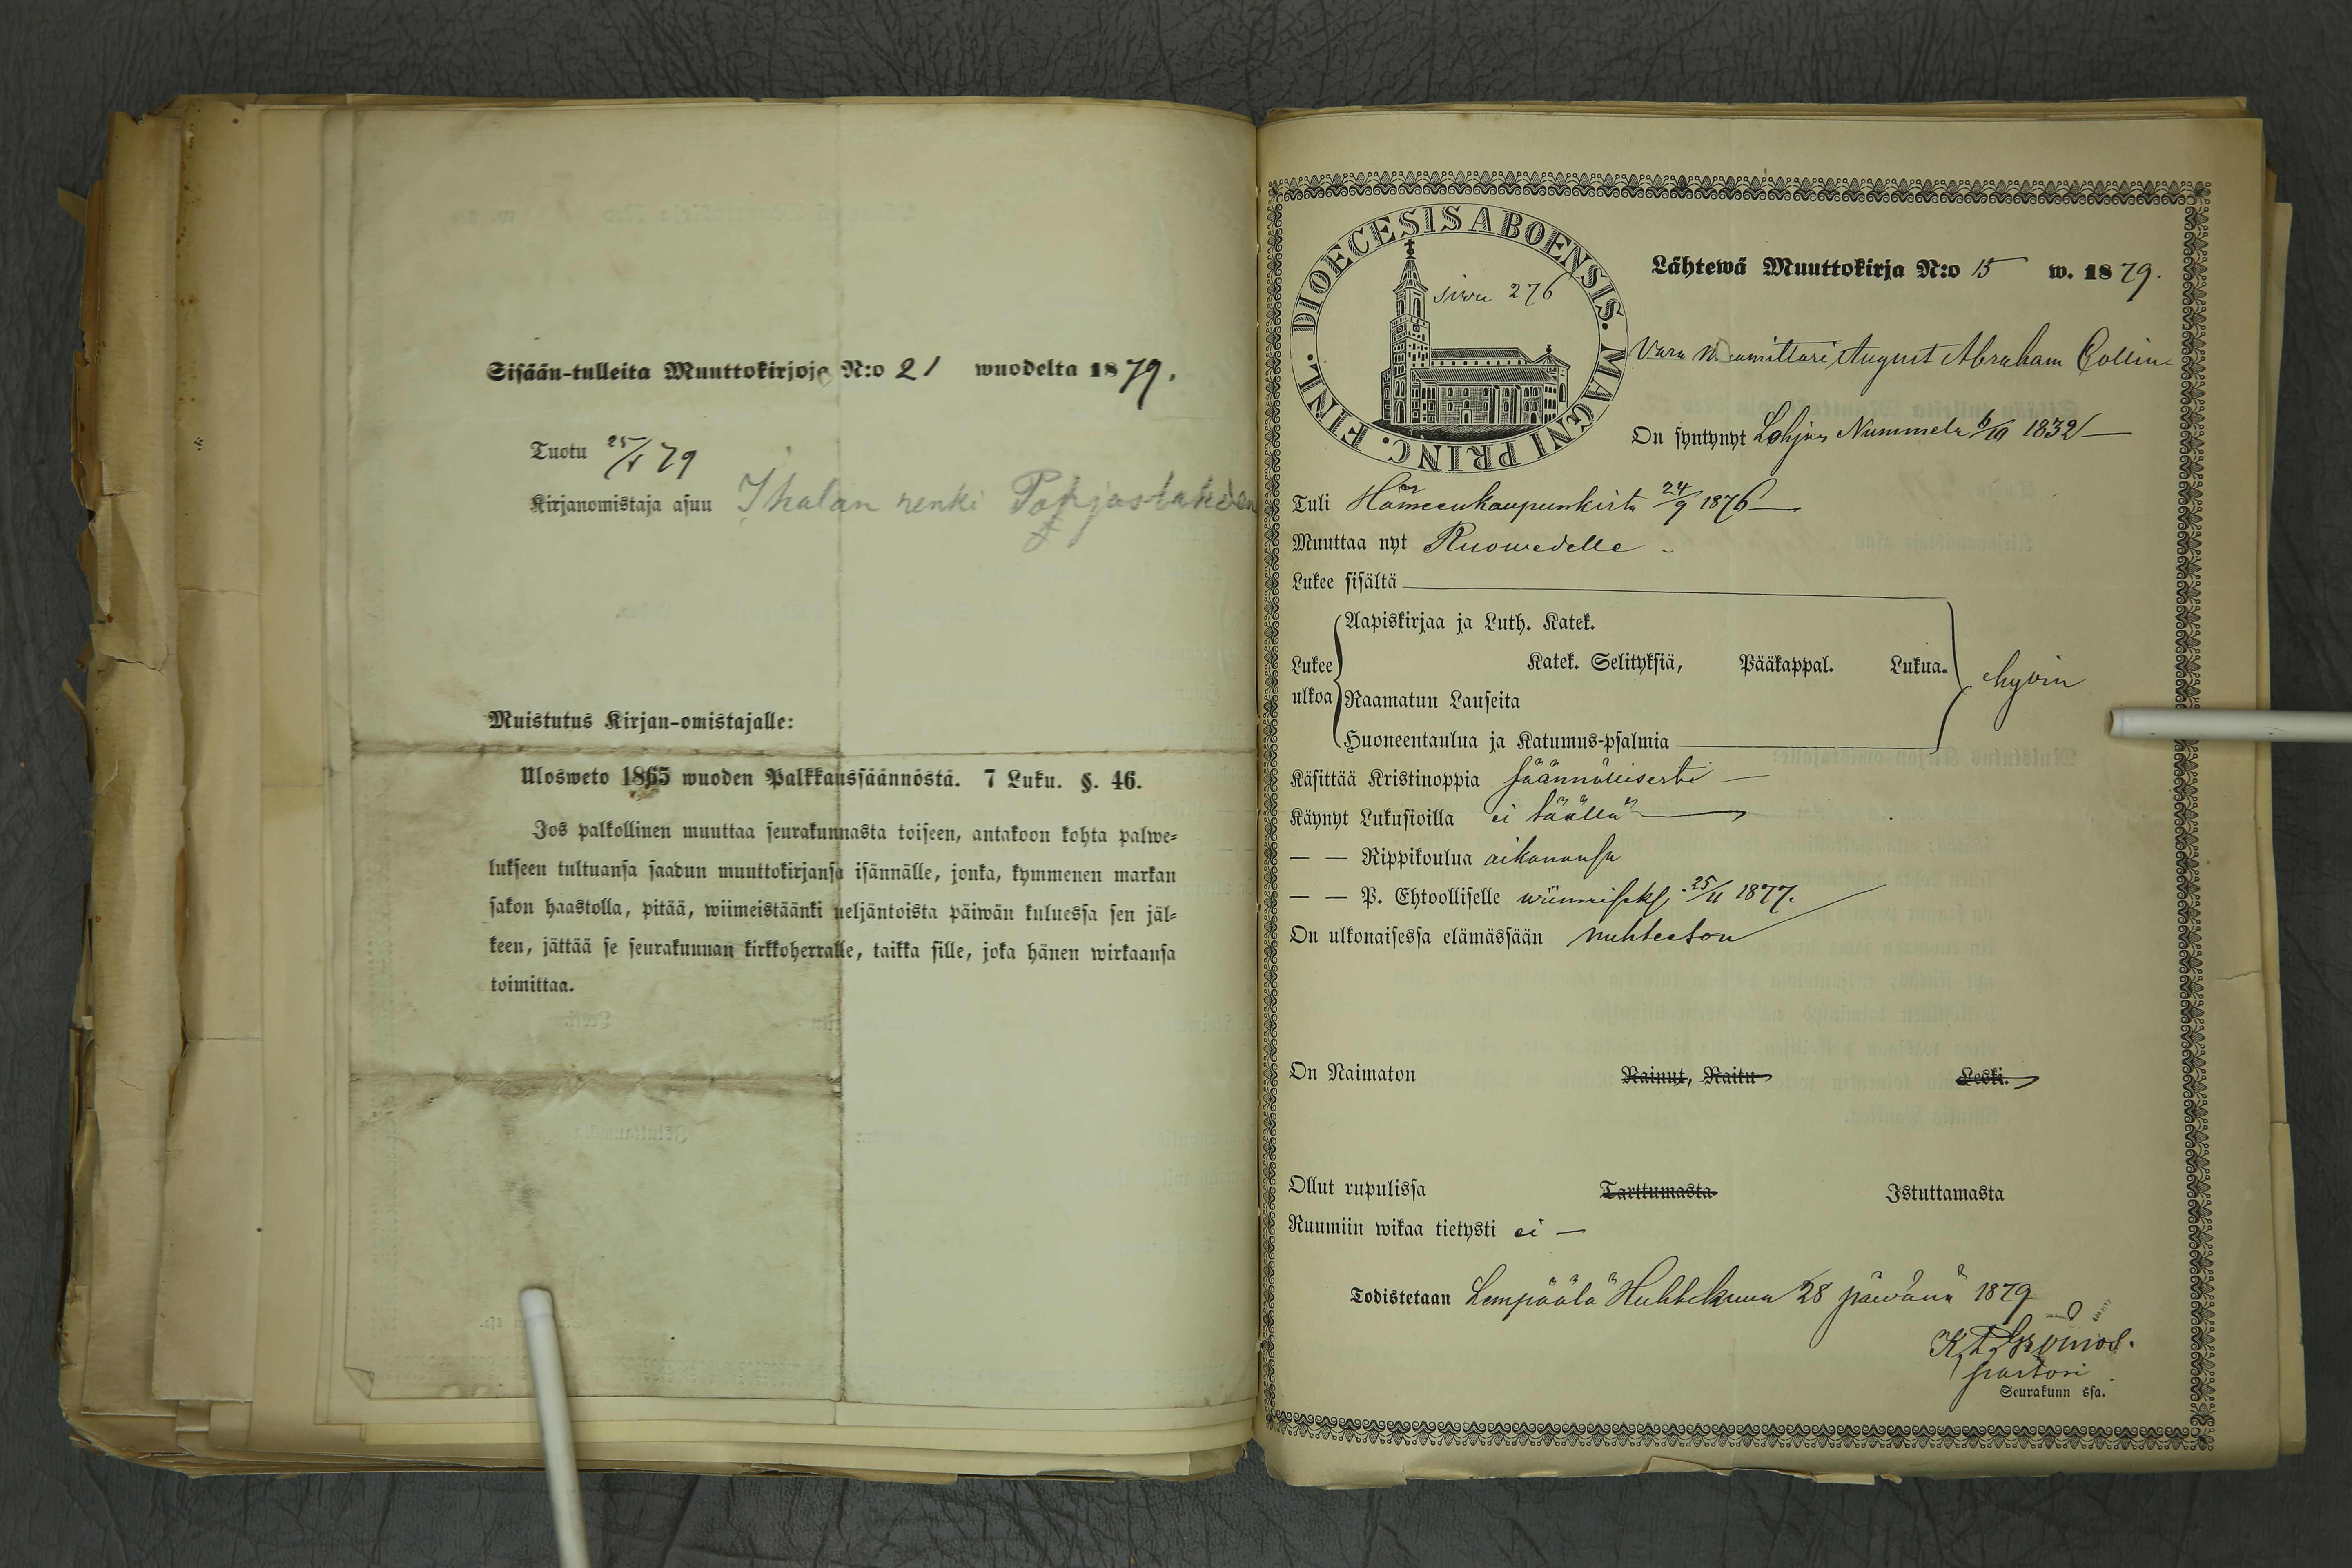 Sisään-tulleita Muuttokirjoja N:o 21 wuodelta 1879.
Tuotu 25/5 79
Kirjanomistaja asuu Ihalan renki Pohjaslahden
Muistutus Kirjan-omistajalle:
Ulosweto 1865 wuoden Palkkaussäännöstä. 7 Luku. §. 46.
Jos palkollinen muuttaa seurakunnasta toiseen, antakoon kohta palwe-
lukseen tultuansa saadun muuttokirjansa isännälle, jonka, kymmenen markan
sakon haastolla, pitää, wiimeistäänki neljäntoista päiwän kuluessa sen jäl-
keen, jättää se seurakunnan kirkkoherralle, taikka sille, joka hänen wirkaansa
toimittaa.
DIOECESIS ABOENSIS. MAGNI PRINC. FINL.
sivu 276
Lähtewä Muuttokirja N:o 15 w. 1879.
Vara August Abraham Collin
On syntynyt Lohjan Nummela 6/10 1832
Tuli Hämeenkaupunkista 24/9 1876
Muuttaa nyt Ruowedelle
Lukee sisältä
Lukee ulkoa
Aapiskirjaa ja Luth. Katek.
Katek. Selityksiä, Pääkappal. Lukua.
Raamatun Lauseita
Huoneentaulua ja Katumus-psalmia
hyvin
Käsittää Kristinoppia säännöllisesti
Käynyt Lukusioilla ei täällä
— — Rippikoulua aikanansa
— — P. Ehtoolliselle wiimeiseksi 25/11 1877.
On ulkonaisessa elämässään nuhteeton
On Naimaton Nainut, Naitu Leski.
Ollut rupulissa Tarttumasta Istuttamasta
Ruumiin wikaa tietysti ei —
Todistetaan Lempäälä Huhtikuun 28 päiwänä 1879
pastori
Seurakunn ssa.